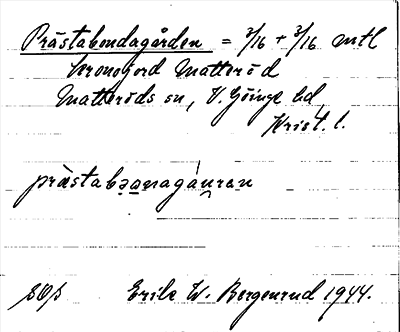 Prästabondagården = 3/16 + 3/16 mtl
kronojord Matteröd
Matteröds sn, V. Göinge hd,
Krist. l.
prästabɔanagáu̯rən
Erik W. Bergenrud 1944.